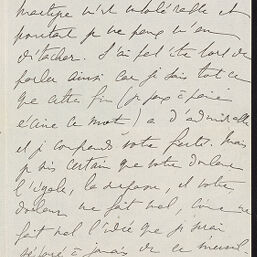 martyre m'est intolérable et
pourtant je ne peux m'en
détacher. J'ai peut être tort de
parler ainsi car je sais tout ce
que cette fin (je peux à peine
écrire ce mot) a d'admirable
et je comprends votre fierté. Mais
je suis certain que votre douleur
l'égale, la dépasse, et votre
douleur me fait mal, comme me
fait mal l'idée que je serai
séparé à jamais de ce merveil-